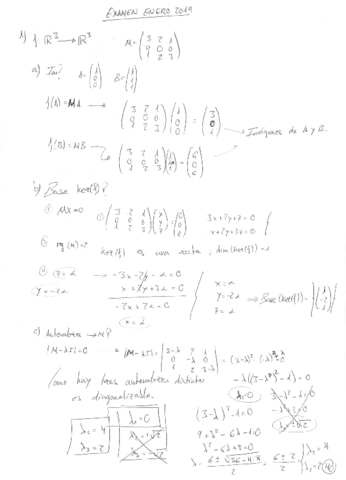 EXAMEN ENERO 2019
1) f: ℝ³ → ℝ³ M = (3 2 1 / 0 0 0 / 1 2 3)
a) Im? A = (1 / 0 / 0) B = (1 / 1 / 1)
f(A) = MA → (3 2 1 / 0 0 0 / 1 2 3)(1 / 0 / 0) = (3 / 0 / 1)
Imágenes de A y B.
f(B) = MB → (3 2 1 / 0 0 0 / 1 2 3)(1 / 1 / 1) = (6 / 0 / 6)
b) Base ker(f)?
MX=0 (3 2 1 / 0 0 0 / 1 2 3)(x / y / z) = (0 / 0 / 0) 3x+2y+z=0
x+2y+3z=0
rg(M)=2 ker(f) es una recta, dim(ker(f))=1
z=λ → -3x-2y-λ=0
y=-2λ x+2y+3λ=0
-2x+2λ=0
x=λ
x=λ
y=-2λ → Base(ker(f)) = (1 / -2 / 1)
z=λ
c) Autovalores → M?
|M-λI|=0 → |M-λI| = |3-λ 2 1 / 0 -λ 0 / 1 2 3-λ| = (3-λ)²·(-λ)+λ
Como hay tres autovalores distintos
es diagonalizable.
-λ((3-λ)²-1)=0
λ₁=0
(3-λ)²-1=0
9+λ²-6λ-1=0
λ²-6λ+8=0
λ₁=0
λ₂=4
λ₃=2